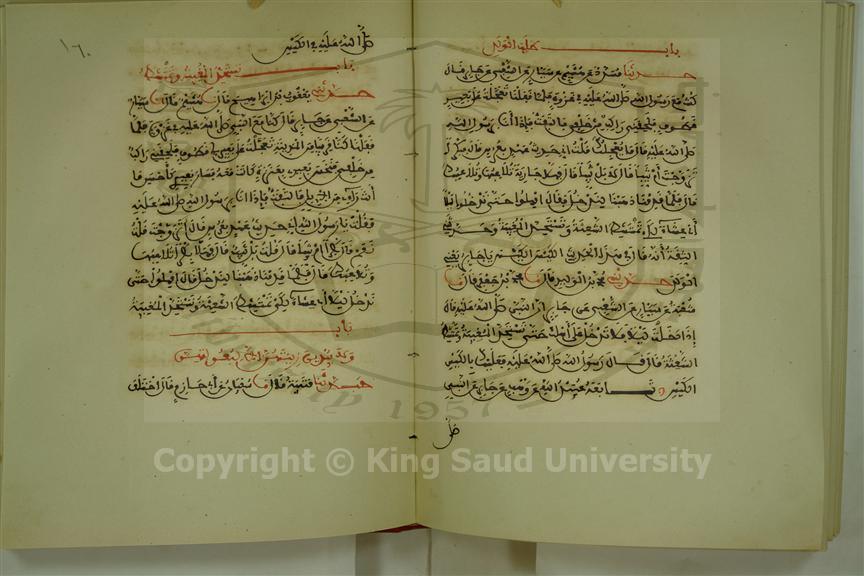 باب طلب الولد
حدثنا مسدد عن هشيم عن سيار عن الشعبي عن جابر قال
كنت مع رسول الله صلى الله عليه في غزوة فلما قفلنا تعجلت على بعير
قطوف فلحقني راكب من خلفي فالتفت فإذا أنا برسول الله
صلى الله عليه قال ما يعجلك قلت إني حديث عهد بعرس قال فبكرا
تزوجت أم ثيبا قال قلت بل ثيبا قال فهلا جارية تلاعبها وتلاعبك
قال فلما قدمنا ذهبنا لندخل فقال امهلوا حتى تدخلوا ليلا
أي عشاء لكي تمتشط الشعثة وتستحد المغيبة وحدثني
الثقة أنه قال في هذا الحديث الكيس الكيس يا جابر يعني
الولد حدثنا محمد بن الوليد قال محمد بن جعفر قال
شعبة عن سيار عن الشعبي عن جابر أن النبي صلى الله عليه قال
إذا دخلت ليلا فلا تدخل على أهلك حتى تستحد المغيبة وتمتشط
الشعثة قال قال رسول الله صلى الله عليه فعليك بالكيس
الكيس تابعه عبيد الله عن وهب عن جابر عن النبي
صلى
١٦٠
صلى الله عليه في الكيس
باب تستحد المغيبة وتمتشط
حدثني يعقوب بن إبراهيم قال هشيم قال سيار
عن الشعبي عن جابر قال كنا مع النبي صلى الله عليه في غزوة فلما
قفلنا كنا قريبا من المدينة تعجلت على بعير لي قطوف فلحقني راكب
من خلفي فنخس بعيري بعنزة كانت معه فسار بعيري كأحسن ما
أنت راء من الإبل فالتفت فإذا أنا برسول الله صلى الله عليه
فقلت يا رسول الله إني حديث عهد بعرس قال أتزوجت قلت
نعم قال أبكرا أم ثيبا قال قلت بل ثيبا قال فهلا بكرا تلاعبها
وتلاعبك قال فلما قدمنا ذهبنا لندخل فقال امهلوا حتى
تدخلوا ليلا أي عشاء لكي تمتشط الشعثة وتستحد المغيبة
باب
ولا يبدين زينتهن إلا لبعولتهن
حدثنا قتيبة قال سفيان عن أبي حازم قال اختلف
Copyright © King Saud University
1957